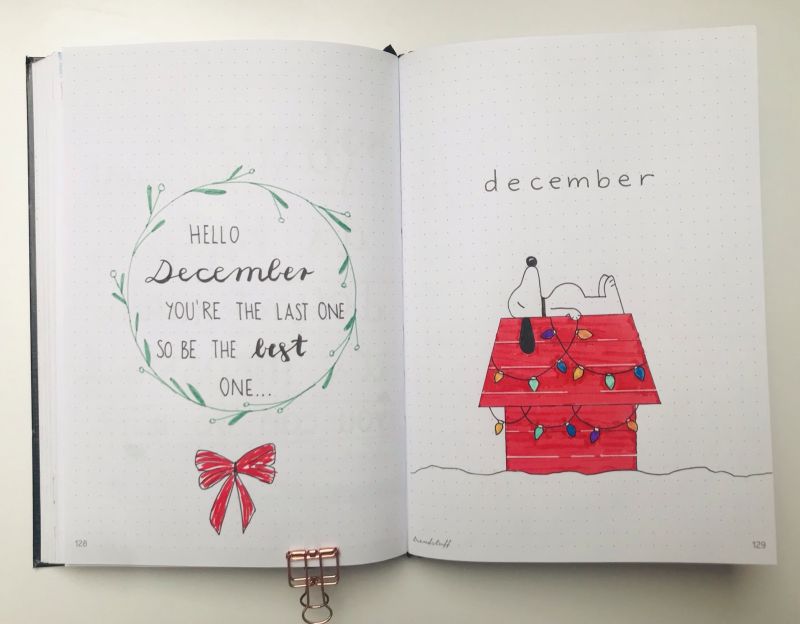 HELLO
December
YOU'RE THE LAST ONE
SO BE THE best
ONE...
128
december
129